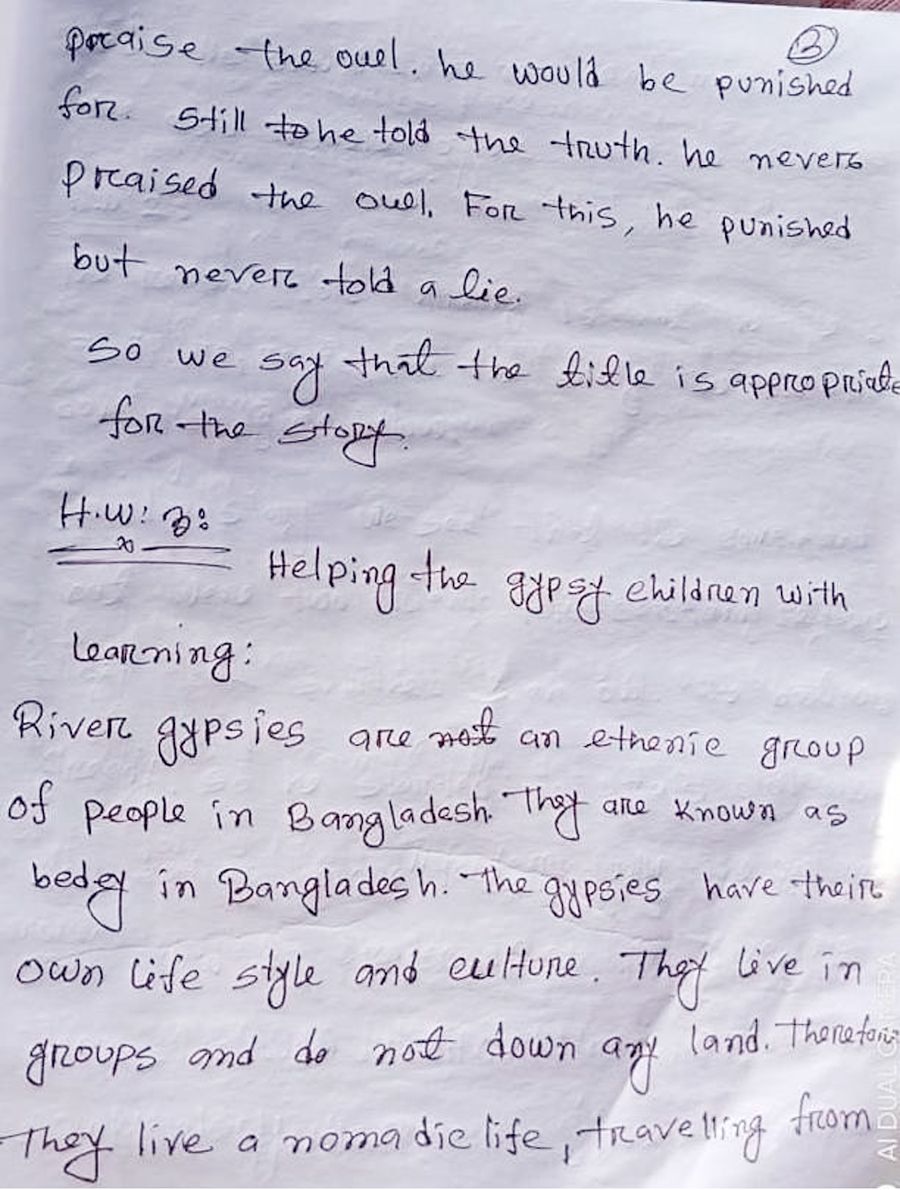 3
praise the ouel. he would be punished
for. Still to he told the truth. he never
praised the ouel. For this, he punished
but never told a lie.
So we say that the title is appropriate
for the story.
H.W: 3:
Helping the gypsy children with
learning:
River gypsies are not an ethenic group
of people in Bangladesh. They are known as
bedey in Bangladesh. The gypsies have their
own life style and culture. They live in
groups and do not down any land. Therefore
They live a nomadic life, travelling from
AI DUAL CAMERA